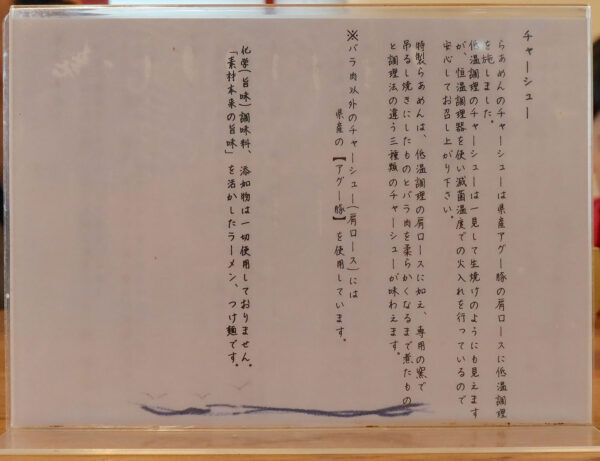 チャーシュー
らあめんのチャーシューは県産アグー豚の肩ロースに低温調理
を施しました。
低温調理のチャーシューは一見して生焼けのようにも見えます
が、恒温調理器を使い滅菌温度での火入れを行っているので
安心してお召し上がり下さい。
特製らあめんは、低温調理の肩ロースに加え、専用の窯で
吊るし焼きにしたものとバラ肉を柔らかくなるまで煮たもの
と調理法の違う三種類のチャーシューが味わえます。
※バラ肉以外のチャーシュー(肩ロース)には
県産の【アグー豚】を使用しています。
化学(旨味)調味料、添加物は一切使用しておりません。
「素材本来の旨味」を活かしたラーメン、つけ麺です。